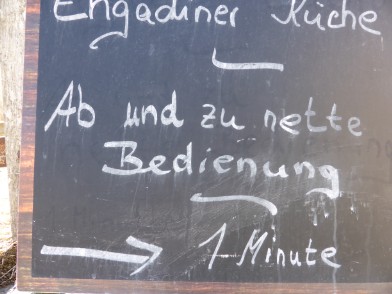 Engadiner Küche
Ab und zu nette
Bedienung
→ 1 Minute